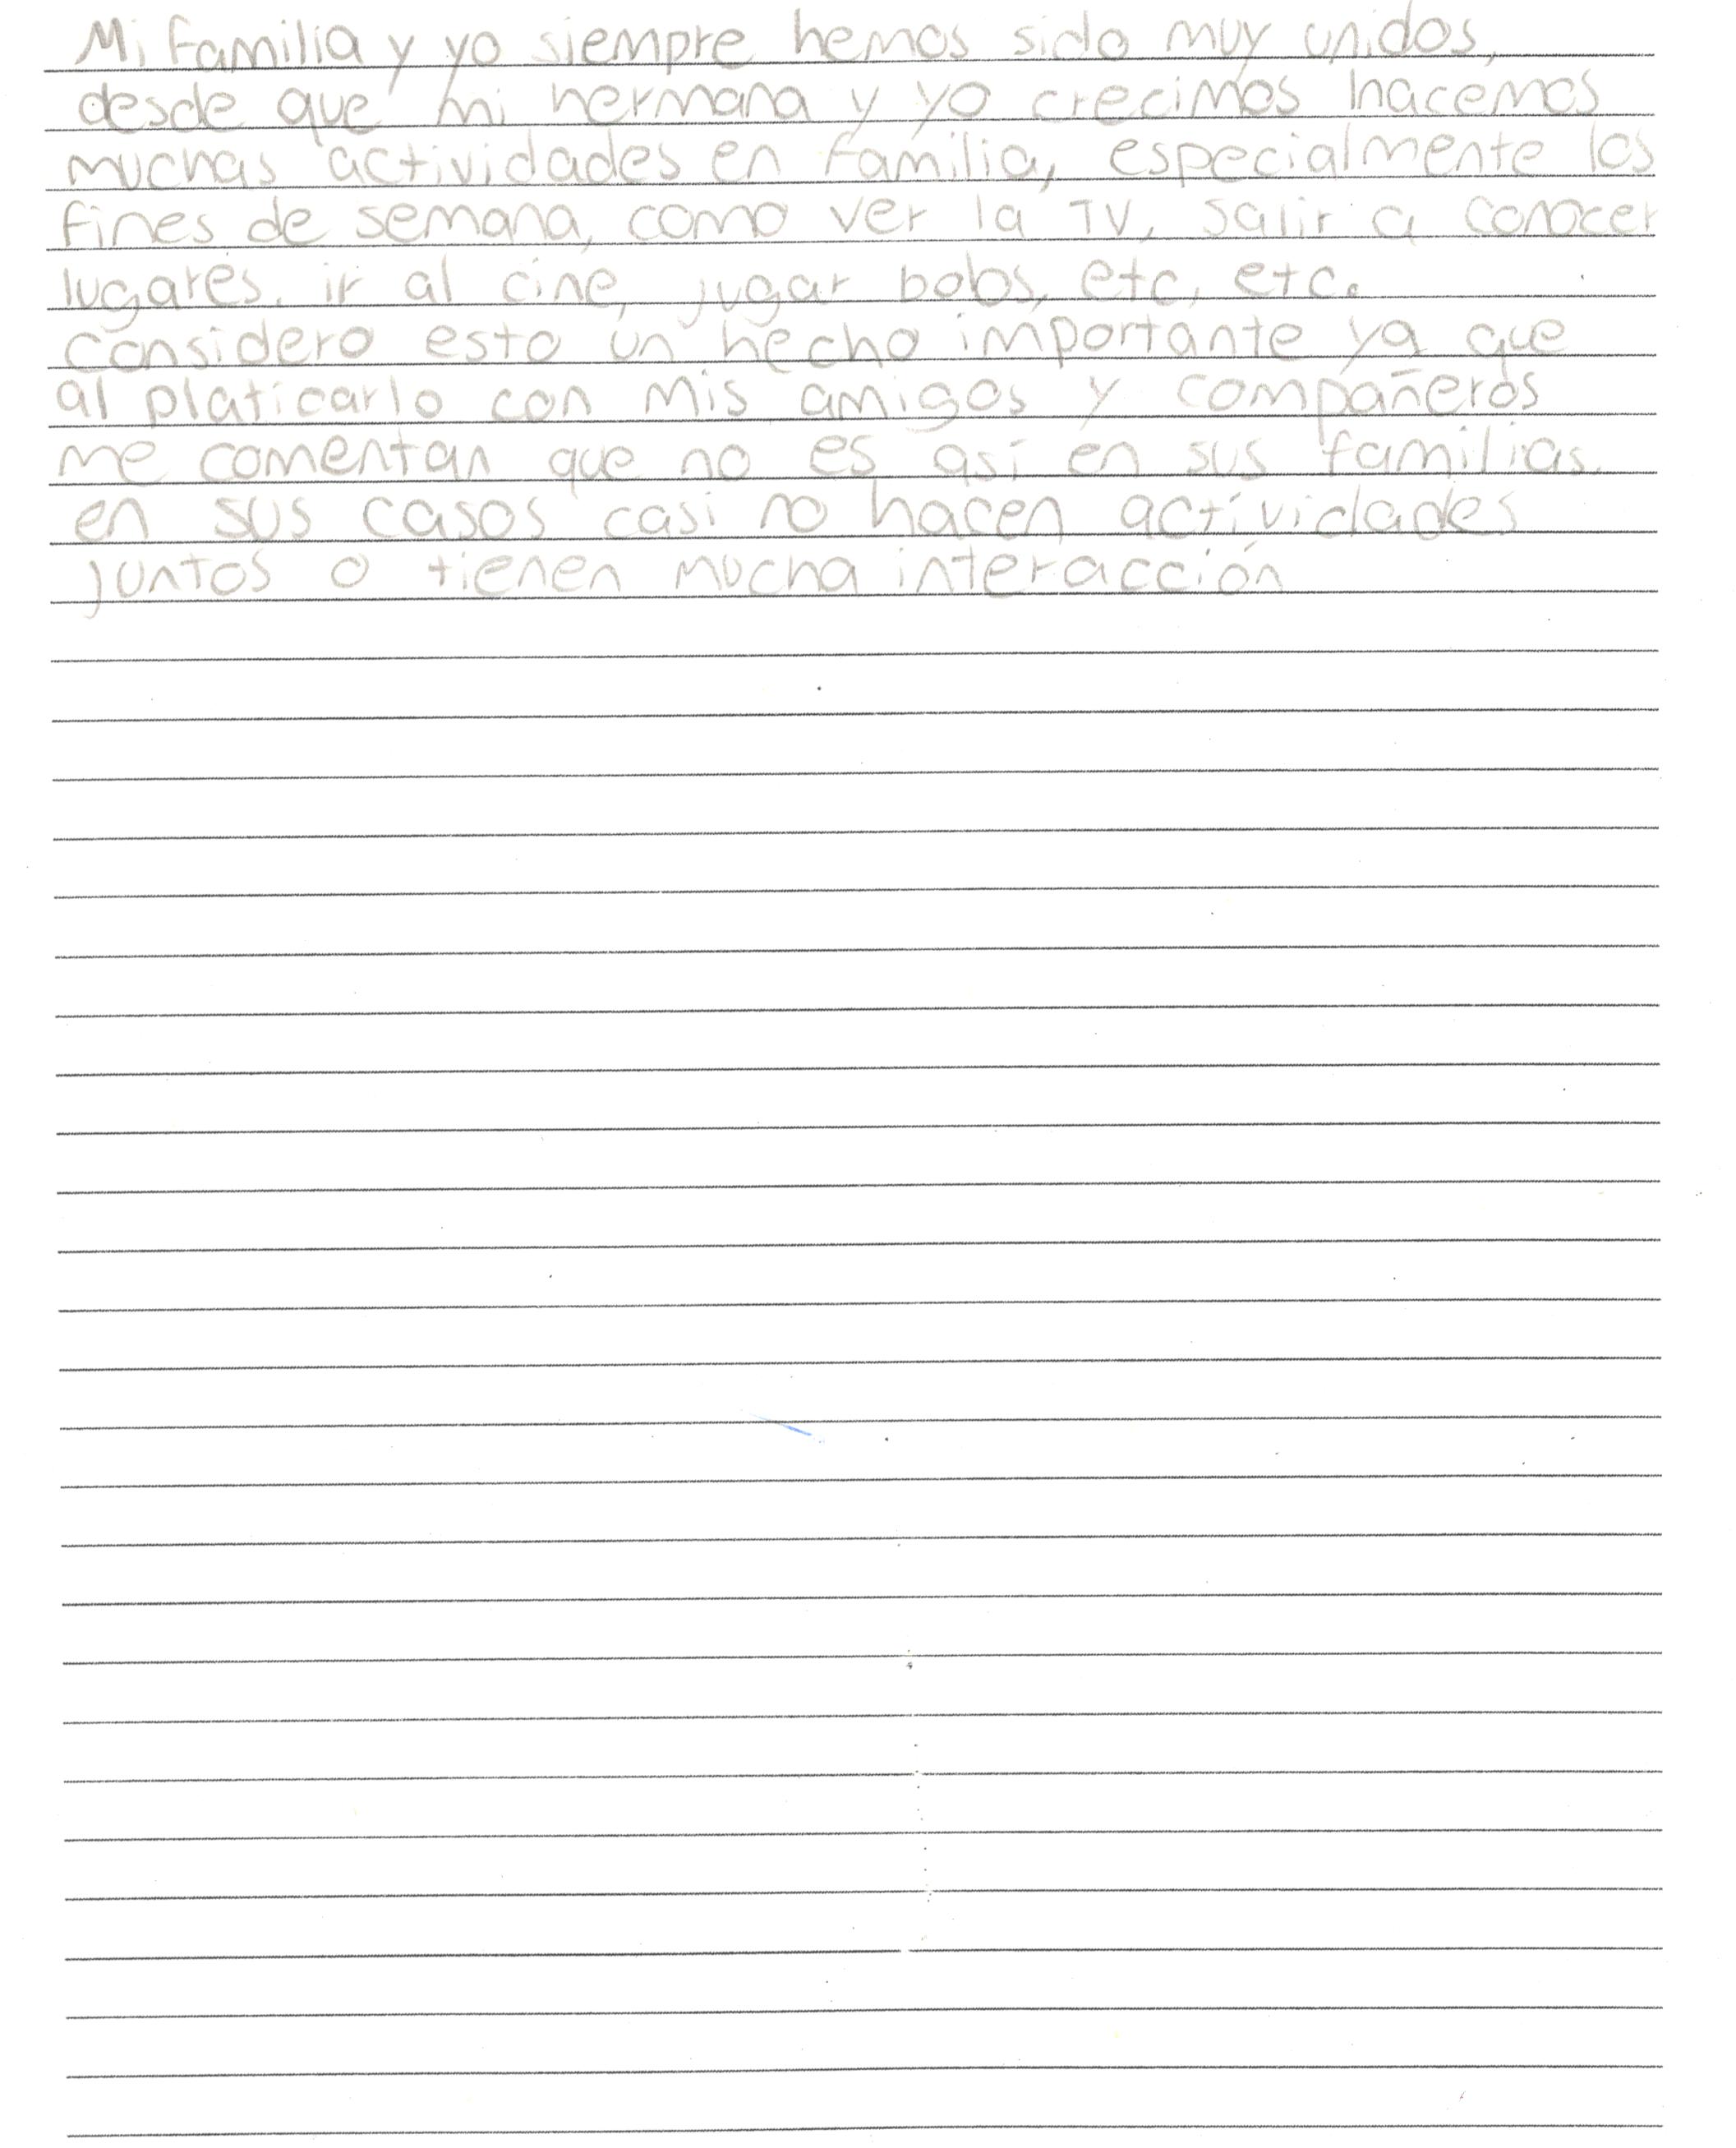 Mi familia y yo siempre hemos sido muy unidos,
desde que mi hermana y yo crecimos hacemos
muchas actividades en familia, especialmente los
fines de semana, como ver la TV, salir a conocer
lugares, ir al cine, jugar bobs, etc, etc.
Considero esto un hecho importante ya que
al platicarlo con mis amigos y compañeros
me comentan que no es así en sus familias.
en sus casos casi no hacen actividades
juntos o tienen mucha interacción